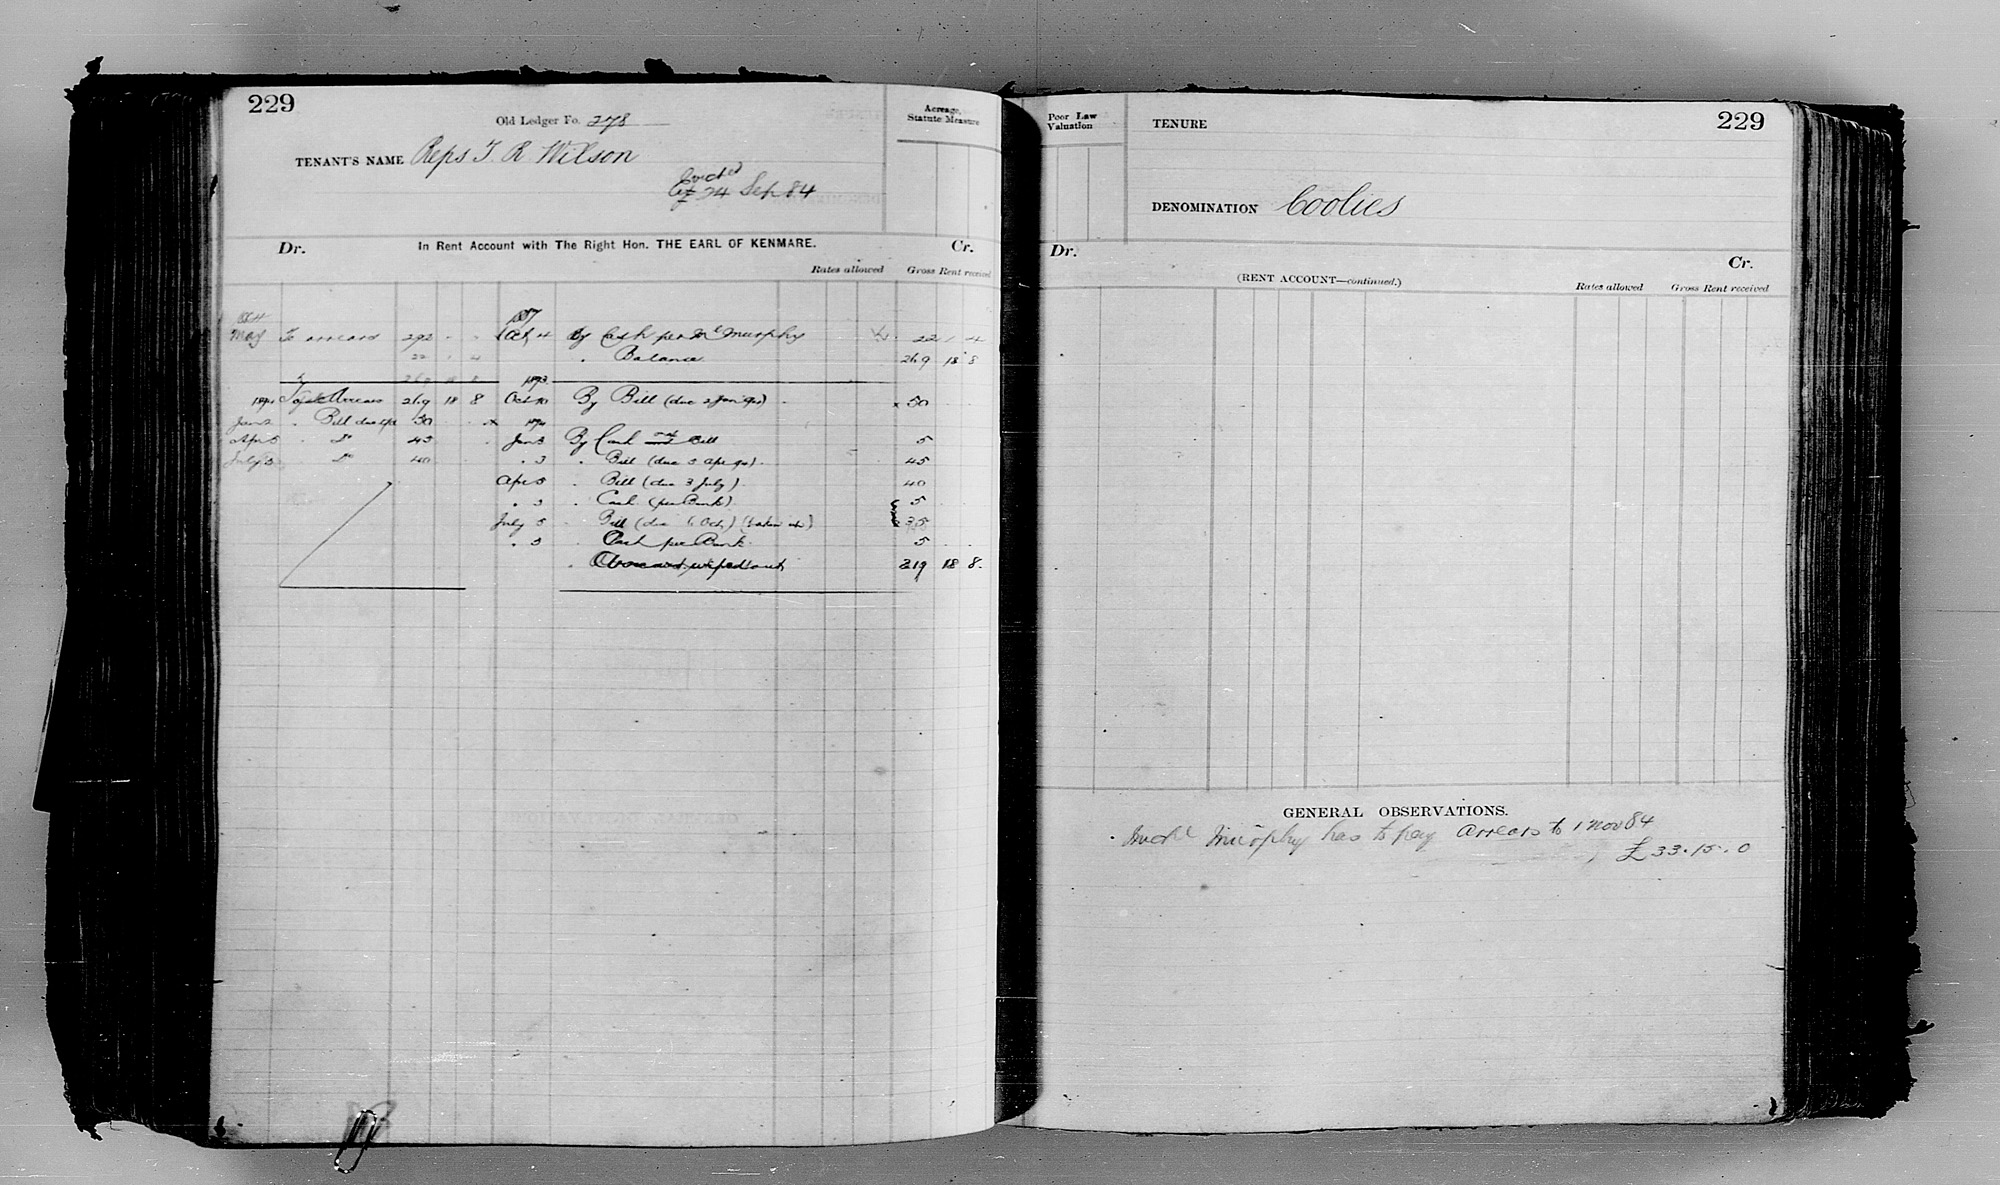 229
Old Ledger Fo. 278
TENANT'S NAME Reps T R Wilson
Evicted
24 Sep 84
Acreage,
Statute Measure
Dr. In Rent Account with The Right Hon. THE EARL OF KENMARE. Cr.
Rates allowed Gross Rent received
May To arrears 292 - - Oct 4 By Cash per Ml Murphy 22 1 4
22 1 4 " Balance 269 18 8
To Arrears 269 18 8 Oct 10 By Bill (due 2 Jan 90) x 50
Jan 2 " Bill due 50 x
Apr 5 " Do 45 Jan 3 By Cash Bill 5
July 3 " Do 40 " 3 " Bill (due 5 Apr 90) 45
Apr 5 " Bill (due 3 July) 40
" 3 " Cash (per Bank) 5
July 5 " Bill (due 6 Oct) (taken up) 35
" 3 " Cash per Bank 5
" wiped out 219 18 8
Poor Law
Valuation
TENURE
229
DENOMINATION Coolies
Dr. Cr.
(RENT ACCOUNT—continued.)
Rates allowed Gross Rent received
GENERAL OBSERVATIONS.
Murphy has to pay arrears to 1 Nov 84
£33.15.0